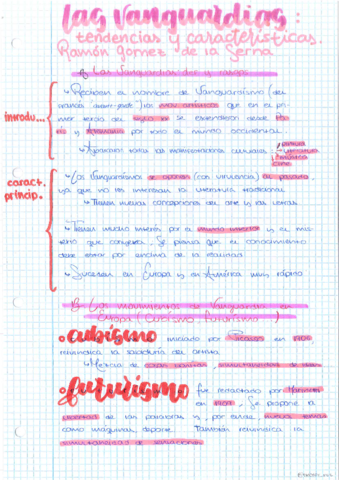 Las vanguardias:
tendencias y características.
Ramón Gómez de la Serna
A) Las Vanguardias: def y rasgos
introdu...
↳ Reciben el nombre de Vanguardismo (del
francés avant-garde) los mov. artísticos que en el pri-
mer tercio del siglo XX se extendieron desde
y por todo el mundo occidental.
↳ Agruparon todas las manifestaciones culturales
literatura
cine
caract.
princip.
↳ Los Vanguardismos se oponen (con virulencia) al pasado,
ya que no les interesan la literatura tradicional
↳ Tienen nuevas concepciones del arte y las letras.
↳ Tienen mucho interés por el mundo interior y el mis-
terio que conlleva. Se piensa que el conocimiento
debe estar por encima de la realidad
↳ Suceden en Europa y en América muy rápido
B) Los movimientos de Vanguardia en
Europa (Cubismo, Futurismo)
cubismo
iniciado por Picasso en 1907
reivindica la
↳ Mezcla de
futurismo
fue redactado por Marinetti
en 1909. Se propone a
libertad de las palabras y, por ende, nuevos temas
como máquinas, deporte. También reivindica la
simultaneidad de sensaciones